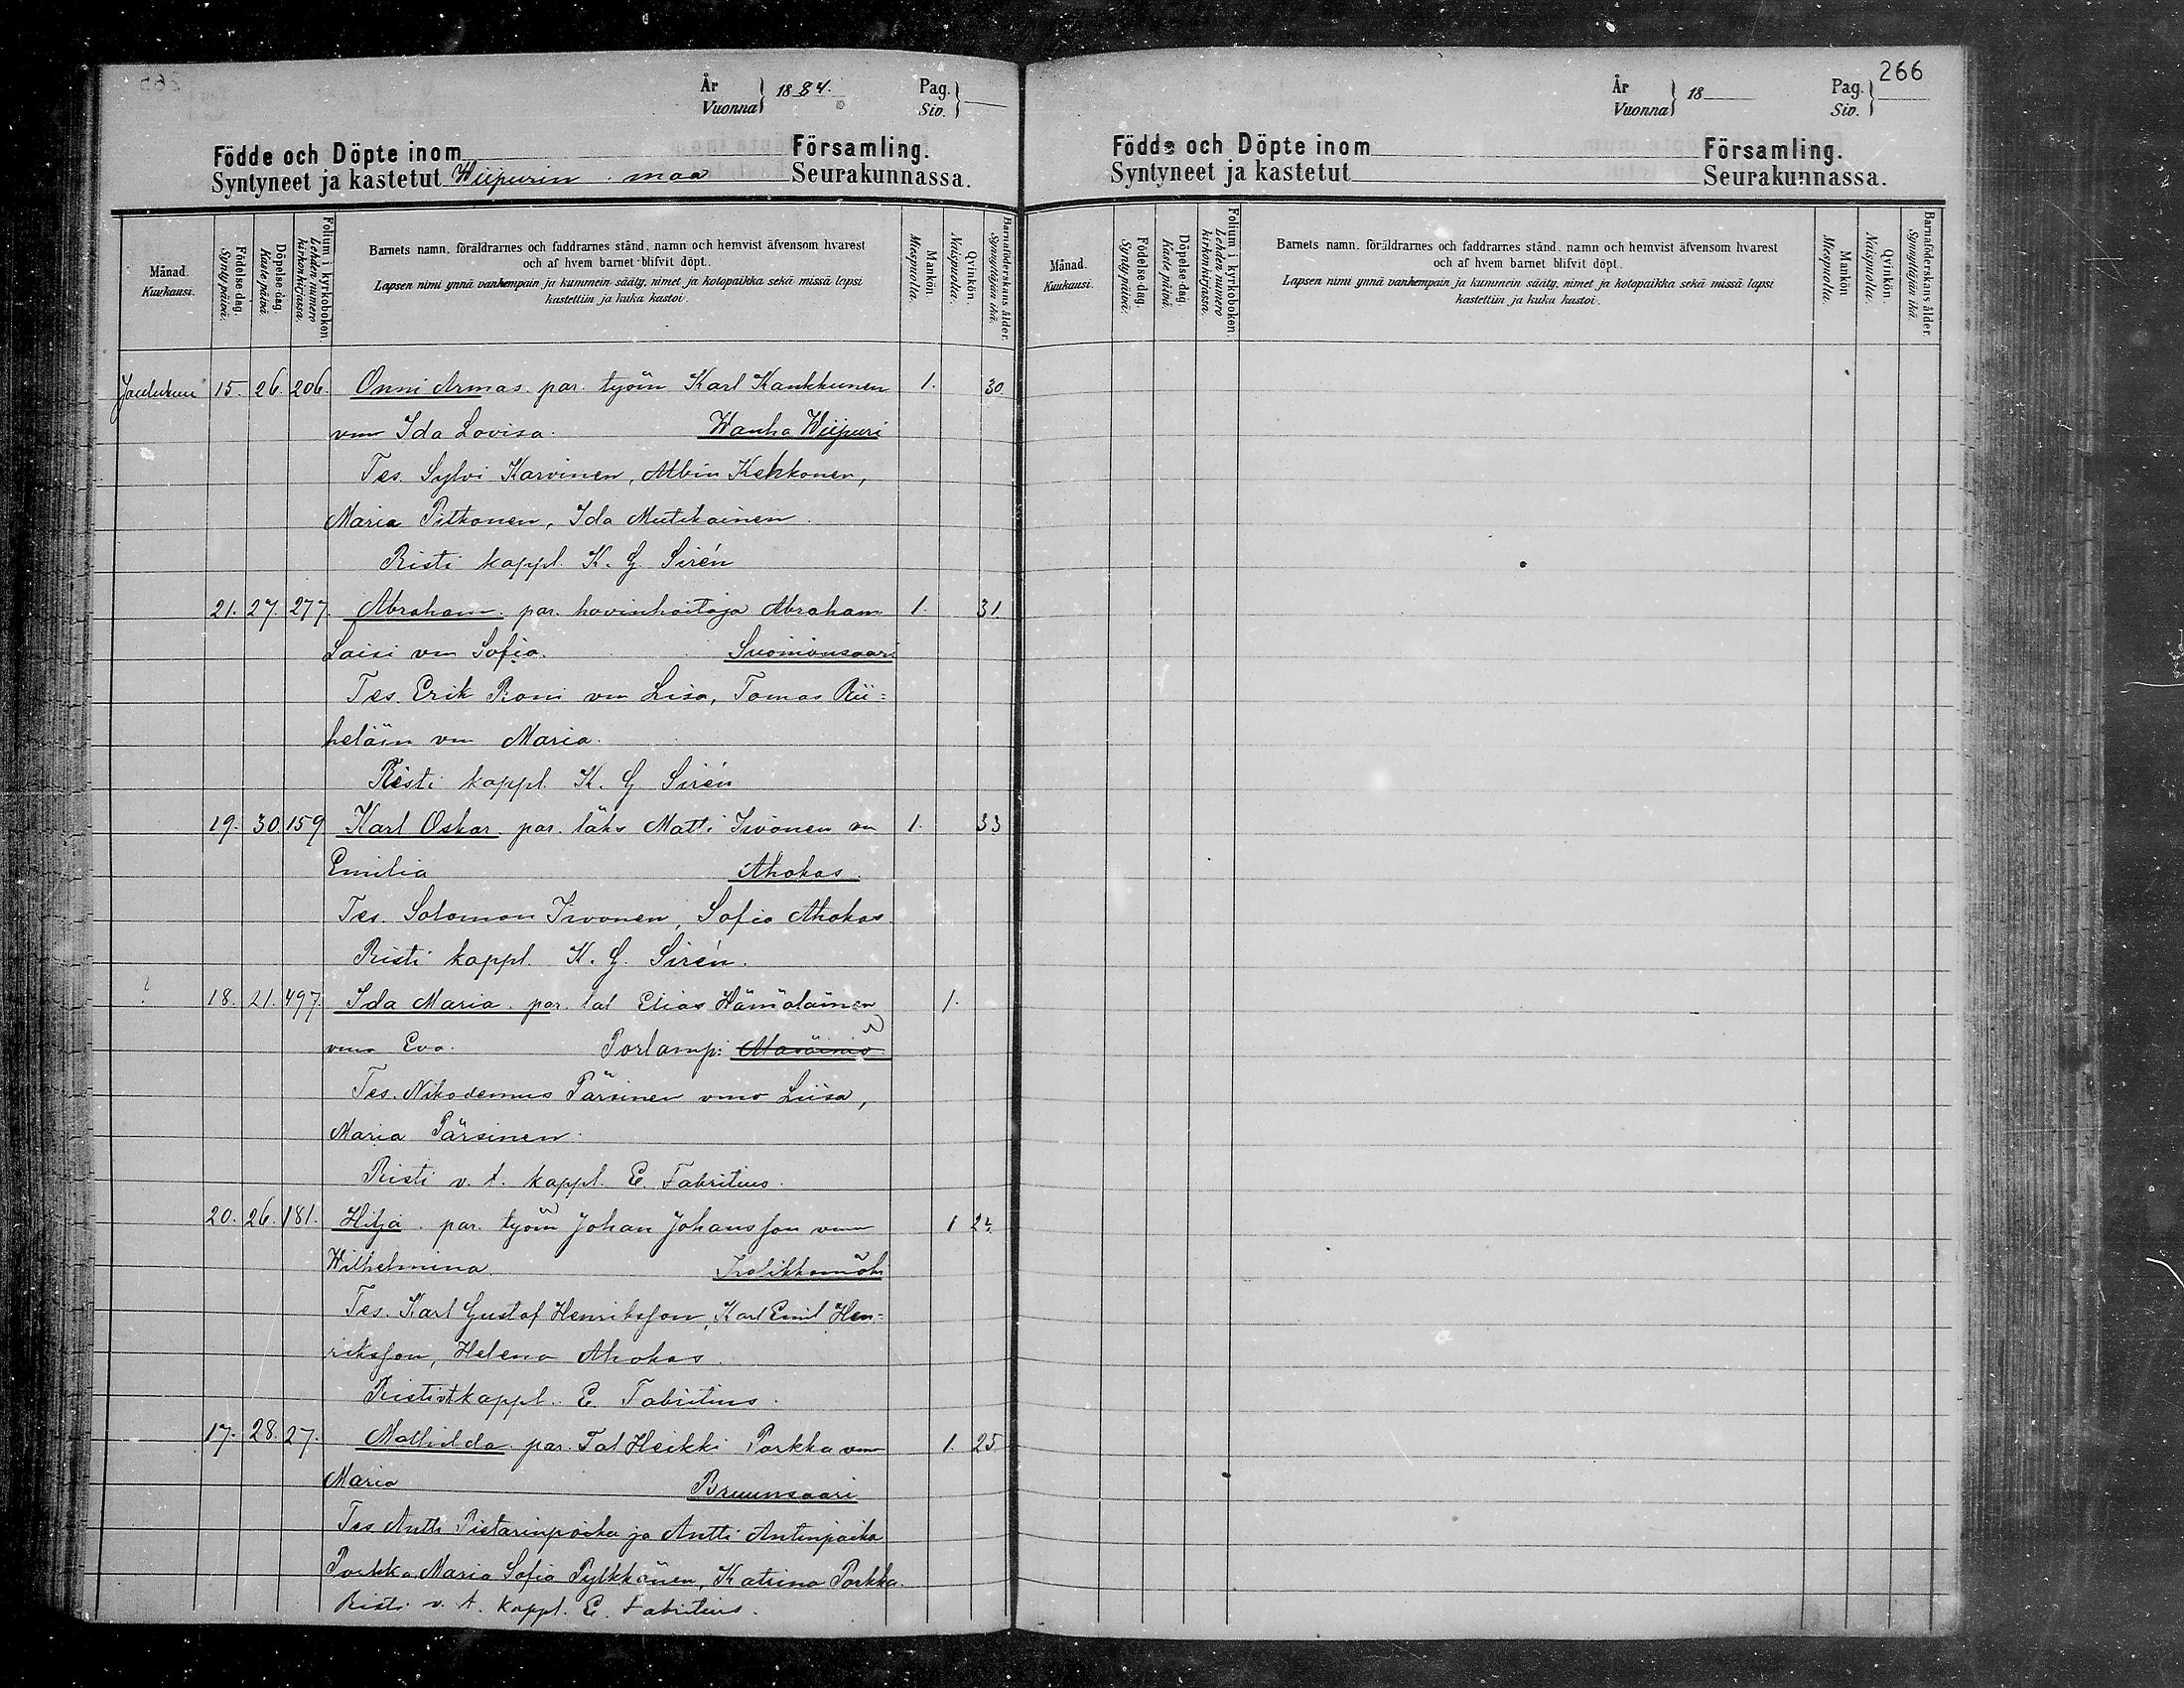 År
Vuonna } 1884.
Pag.
Siv. }
Födde och Döpte inom Församling.
Syntyneet ja kastetut Wiipurin maa Seurakunnassa.
Månad.
Kuukausi.
Födelse-dag.
Syntypäivä.
Döpelse-dag.
Kastepäivä.
Folium i kyrkoboken.
Lehden numero
kirkonkirjassa.
Barnets namn, föräldrarnes och faddrarnes stånd, namn och hemvist äfvensom hvarest
och af hvem barnet blifvit döpt.
Lapsen nimi ynnä vanhempain ja kummein sääty, nimet ja kotopaikka sekä missä lapsi
kastettiin ja kuka kastoi.
Mankön.
Miespuolia.
Qvinkön.
Naispuolia.
Barnaföderskans ålder.
Synnyttäjän ikä.
Joulukuu 15. 26. 206. Onni Armas. par. työm Karl Kankkunen 1. 30.
vm Ida Lovisa. Wanha Wiipuri
Tes. Sylvi Karvinen, Albin Kekkonen,
Maria Pitkonen, Ida Mutikainen.
Risti kappl. K. G. Sirén
21. 27. 277. Abraham. par. hovinhoitaja Abraham 1. 31.
Laisi vm Sofia. Suomionsaari
Tes. Erik Roni vm Lisa, Tomas Rii=
heläin vm Maria.
Risti kappl. K. G. Sirén
19. 30. 159 Karl Oskar. par. läks Matti Iivonen vm 1. 33
Emilia Ahokas.
Tes. Solomon Iivonen, Sofia Ahokas.
Risti kappl. K. G. Sirén.
? 18. 21. 497. Ida Maria. par. tal Elias Hämäläinen 1.
vmo Eva. Porlampi
Tes. Nikodemus Pärsinen vmo Liisa,
Maria Pärsinen.
Risti v. t. kappl. E. Fabritius.
20. 26. 181. Hilja. par. työm Johan Johansson vm 1 22.
Wilhelmina.
Tes. Karl Gustaf Henriksson, Karl Emil Hen=
riksson, Helena Ahokas.
Risti vt kappl. E. Fabritius.
17. 28. 27. Mathilda. par. Tal Heikki Porkka vm 1. 25
Maria Bruunsaari
Tes Antti Pietarinpoika ja Antti Antinpoika
Porkka, Maria Sofia Pylkkänen, Katrina Porkka.
Risti v. t. kappl. E. Fabritius.
266
År
Vuonna } 18
Pag.
Siv. }
Födde och Döpte inom Församling.
Syntyneet ja kastetut Seurakunnassa.
Månad.
Kuukausi.
Födelse-dag.
Syntypäivä.
Döpelse-dag.
Kastepäivä.
Folium i kyrkoboken.
Lehden numero
kirkonkirjassa.
Barnets namn, föräldrarnes och faddrarnes stånd, namn och hemvist äfvensom hvarest
och af hvem barnet blifvit döpt.
Lapsen nimi ynnä vanhempain ja kummein sääty, nimet ja kotopaikka sekä missä lapsi
kastettiin ja kuka kastoi.
Mankön
Miespuolia.
Qvinkön.
Naispuolia.
Barnaföderskans ålder.
Synnyttäjän ikä.